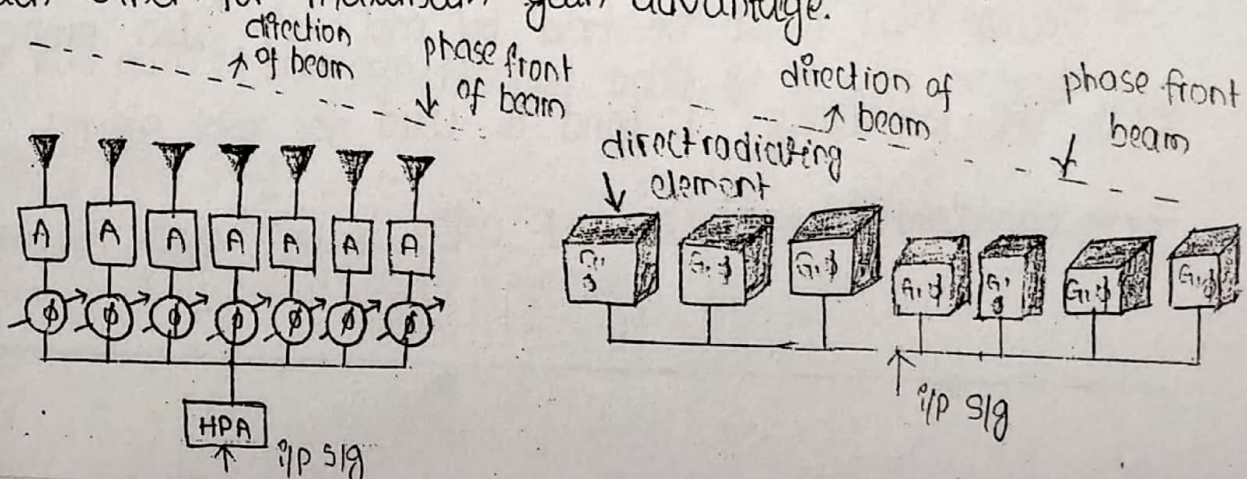 for maximum gain advantage.
direction
of beam
phase front
of beam
A A A A A A A
ϕ ϕ ϕ ϕ ϕ ϕ ϕ
HPA
i/p s/g
direction of
beam
phase front
beam
direct radiating
element
G, ϕ G, ϕ G, ϕ G, ϕ G, ϕ G, ϕ G, ϕ
i/p s/g